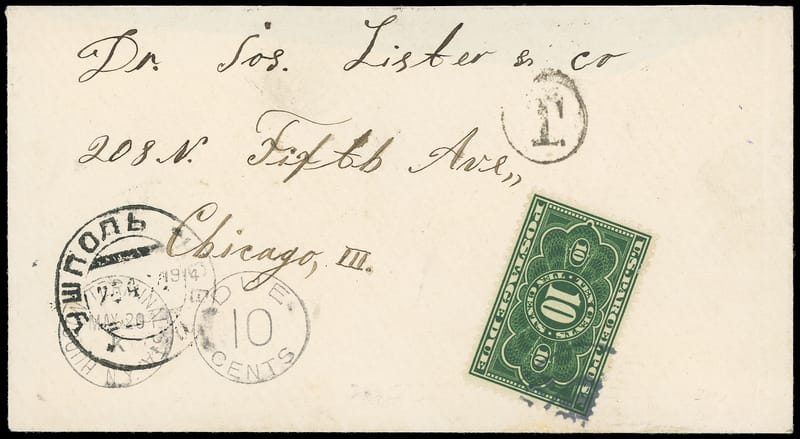 Dr. Jos. Lister & co
208 N. Fifth Ave,,
Chicago, Ill.
T.
УШПОЛЬ
1914
MAY 20
DUE
10
CENTS
U.S. PARCEL POST
POSTAGE DUE
10
TEN CENTS
10
10